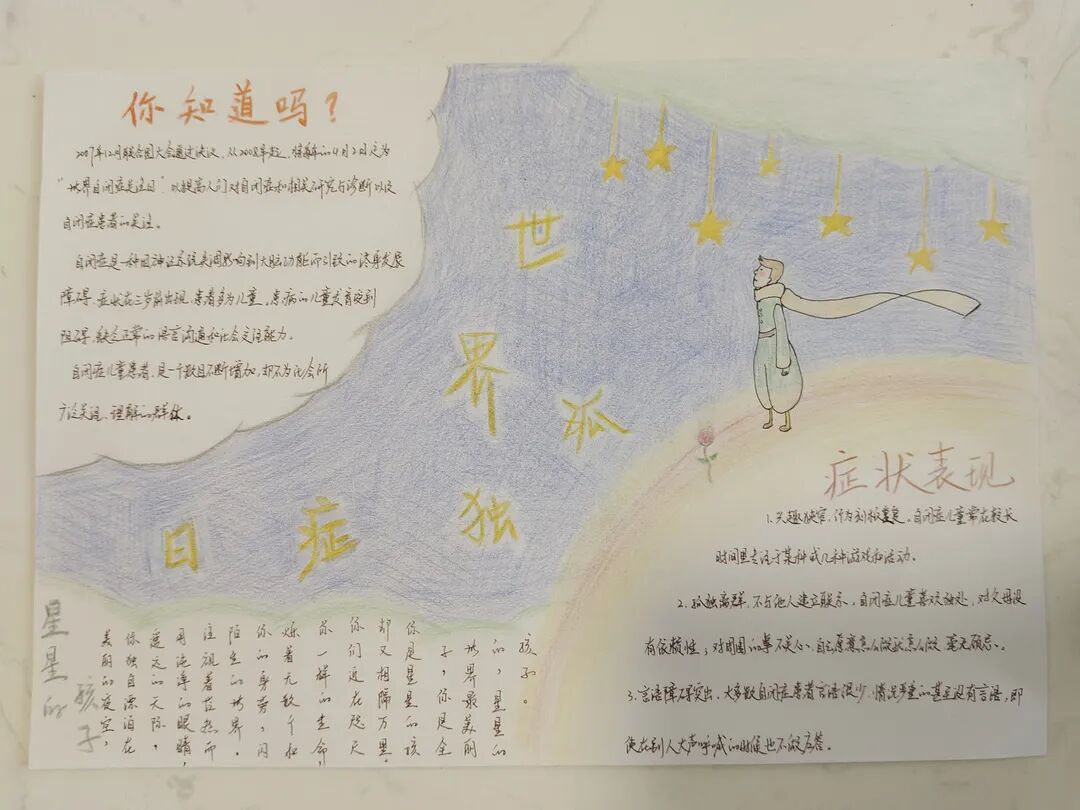 你知道吗?
2007年12月联合国大会通过决议,从2008年起,将每年的4月2日定为
“世界自闭症关注日”,以提高人们对自闭症和相关研究与诊断以及
自闭症患者的关注。
自闭症是一种因神经系统失调影响到大脑功能而引致的终身发展
障碍,症状在三岁前出现,患者多为儿童,患病的儿童发育受到
阻碍,缺乏正常的语言沟通和社会交往能力。
自闭症儿童患者,是一个数目不断增加,却不为社会所
广泛关注、理解的群体。
世界孤独症日
症状表现
1.兴趣狭窄,行为刻板重复,自闭症儿童常在较长
时间里专注于某种或几种游戏和活动。
2.孤独离群,不与他人建立联系,自闭症儿童喜欢独处,对父母没
有依赖性;对周围的事不关心、自己愿意怎么做就怎么做,毫无顾忌。
3.言语障碍突出,大多数自闭症患者言语很少,情况严重的甚至没有言语,即
使在别人大声呼喊的时候也不做应答。
星星的
孩子
美丽的夜空,
你独自漂泊在
遥远的天际,
用纯净的眼睛,
注视着热而
陌生的世界。
你的身旁,闪
烁着无数和
你一样的生命,
你们近在咫尺
却又相隔万里。
你是星星的孩
子,你是全
世界最美丽
的,星星的
孩子。